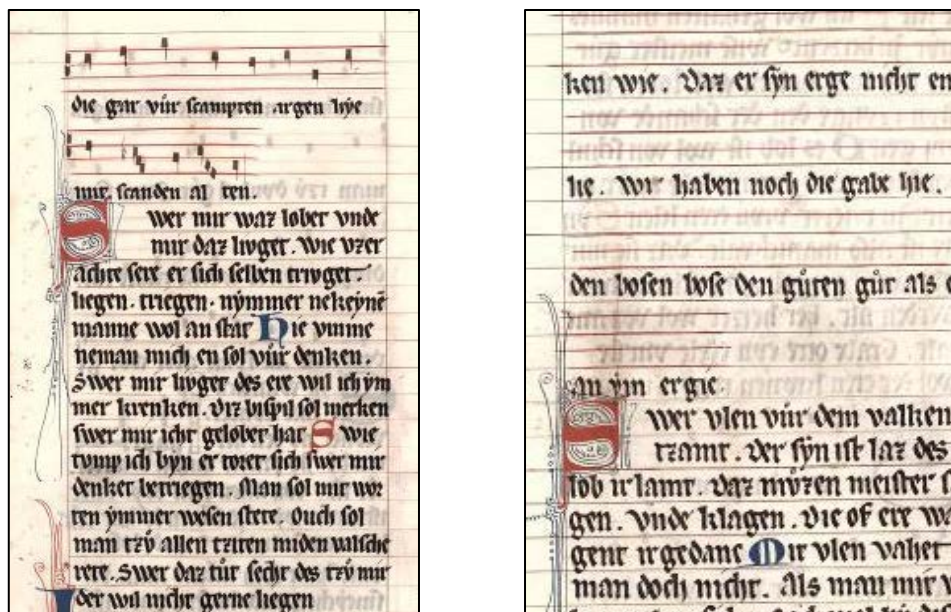 die gar vür scampten argen hye
mit scanden al ten.
Swer mir waz lobet vnde
mir daz livget. Wie vzer
achte sere er sich selben trivget.
liegen. triegen. nymmer nekeynē
manne wol an stat Hie vmme
nieman mich en sol vür denken.
Swer mir livget des ere wil ich ym
mer krenken. Diz bispil sol merken
swer mir icht gelobet hat Swie
tvmp ich byn er toret sich swer mir
denket betriegen. Man sol mit wor
ten ymmer wesen stete. Ouch sol
man tzv allen tziten miden valsche
rete. Swer daz tůt secht des tzv mir
der wil nicht gerne liegen
ken wie. Daz er syn erge nicht en
hie. Wir haben noch die gabe hie.
den bosen bose den gůten gůt als
an ym ergie
Swer vlen vür dem valken
tzamt. Der syn ist laz des
lob irlamt. daz mvzen meister
gen. Vnde klagen. Die of ere
gent ir gedanc Mit vlen vahet
man doch nicht. Als man mir